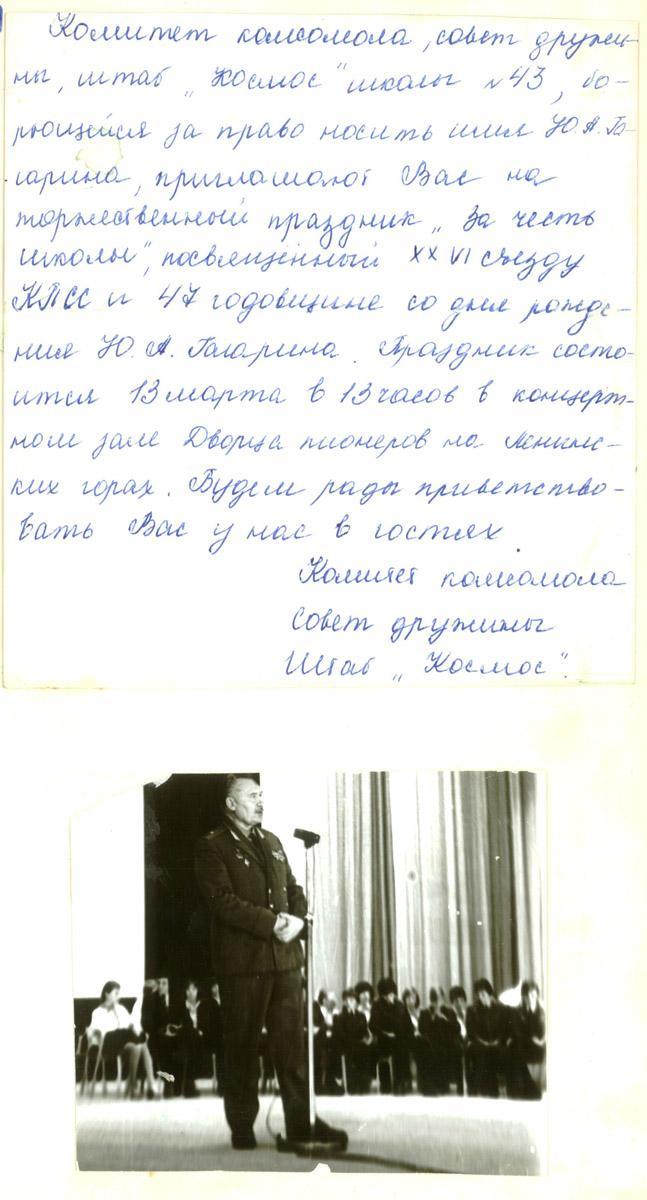 Комитет комсомола, совет дружи-
ны, штаб „Космос" школы №43, бо-
рющейся за право носить имя Ю.А.Га-
гарина, приглашают Вас на
торжественный праздник „За честь
школы", посвящённый XXVI съезду
КПСС и 47 годовщине со дня рожде-
ния Ю.А.Гагарина. Праздник состо-
ится 13 марта в 13 часов в концерт-
ном зале Дворца пионеров на Ленинс-
ких горах. Будем рады приветство-
вать Вас у нас в гостях.
Комитет комсомола
Совет дружины
Штаб „Космос".